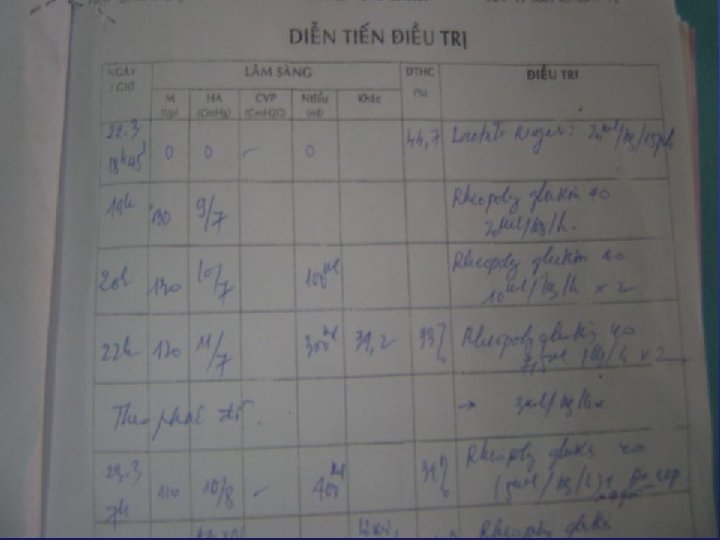 DIỄN TIẾN ĐIỀU TRỊ
NGÀY / GIỜ LÂM SÀNG DTHC (%) ĐIỀU TRỊ
M (l/p) HA (CmHg) CVP (CmH2O) Ntiểu (ml) Khác
22.3 18h45 0 0 - 0 44,7 Lactate Ringer: 20ml/kg/15ph
19h 130 9/7 Rheopoly glukin 40
20ml/kg/h.
20h 120 10/7 100ml Rheopoly glukin 40
10ml/kg/h x 2
22h 120 11/7 300ml 39,2 33% Rheopoly glukin 40
7,5ml/kg/h x 2
Theo phác đồ. → 3ml/kg/h
23.3 7h 110 10/8 - 400ml Rheopoly glukin 40
(5ml/kg/h)
Rheopoly glukin